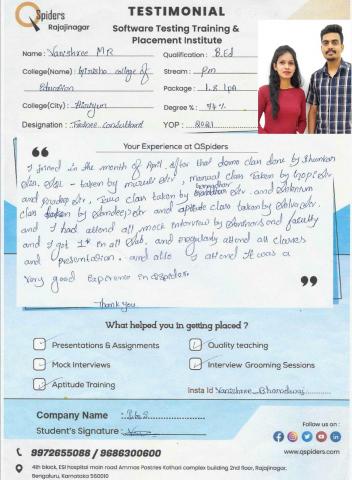 QSpiders
Rajajinagar
TESTIMONIAL
Software Testing Training &
Placement Institute
Name : Vanishree M R
Qualification : B.Ed
College(Name) : college of
Education
Stream : pm
Package : 1.8 lpA
College(City) :
Degree % : 74%
Designation : Trainee Consultant
YOP : 2021
Your Experience at QSpiders
I joined in the month of April, after that demo class done by
Sir, SQL - taken by sir, manual class taken by
and sir, Java class taken by sir and
class taken by sir and aptitude class taken by sir
and I had attend all mock interview by and faculty
and I got 1* in all Sub, and regularly attend all classes
and presentation. and also I attend It was a
very good Experience in QSpiders.
Thank you
What helped you in getting placed ?
Presentations & Assignments
Quality teaching
Mock Interviews
Interview Grooming Sessions
Aptitude Training
Insta Id Vanishree_Bharadwaj
Company Name :
Student's Signature :
Follow us on :
www.qspiders.com
9972655088 / 9686300600
4th block, ESI hospital main road Ammas Pastries Kothari complex building 2nd floor, Rajajinagar,
Bengaluru, Karnataka 560010